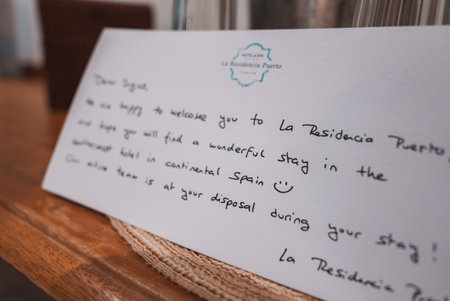 HOTEL & SPA
La Residencia Puerto
TARIFA
Dear Ingrid,
We are happy to welcome you to La Residencia Puerto,
and hope you will find a wonderful stay in the
southernmost hotel in continental Spain ☺
Our entire team is at your disposal during your stay!
La Residencia Pu